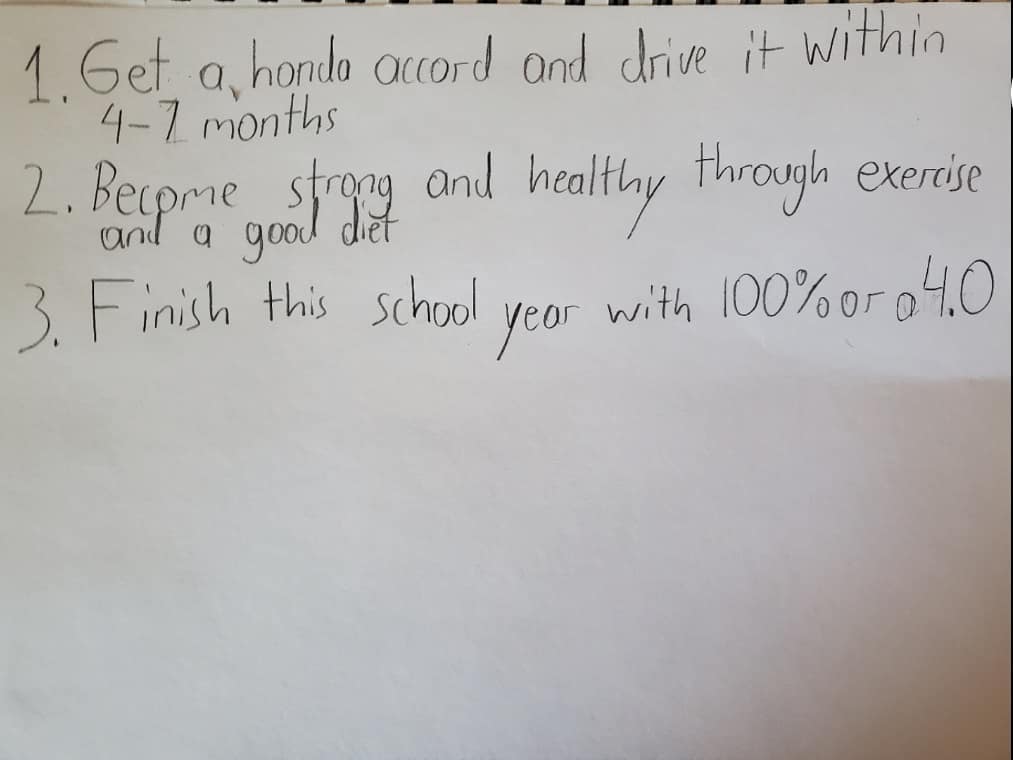 1. Get a honda accord and drive it within
4-7 months
2. Become strong and healthy through exercise
and a good diet
3. Finish this school year with 100% or a 4.0